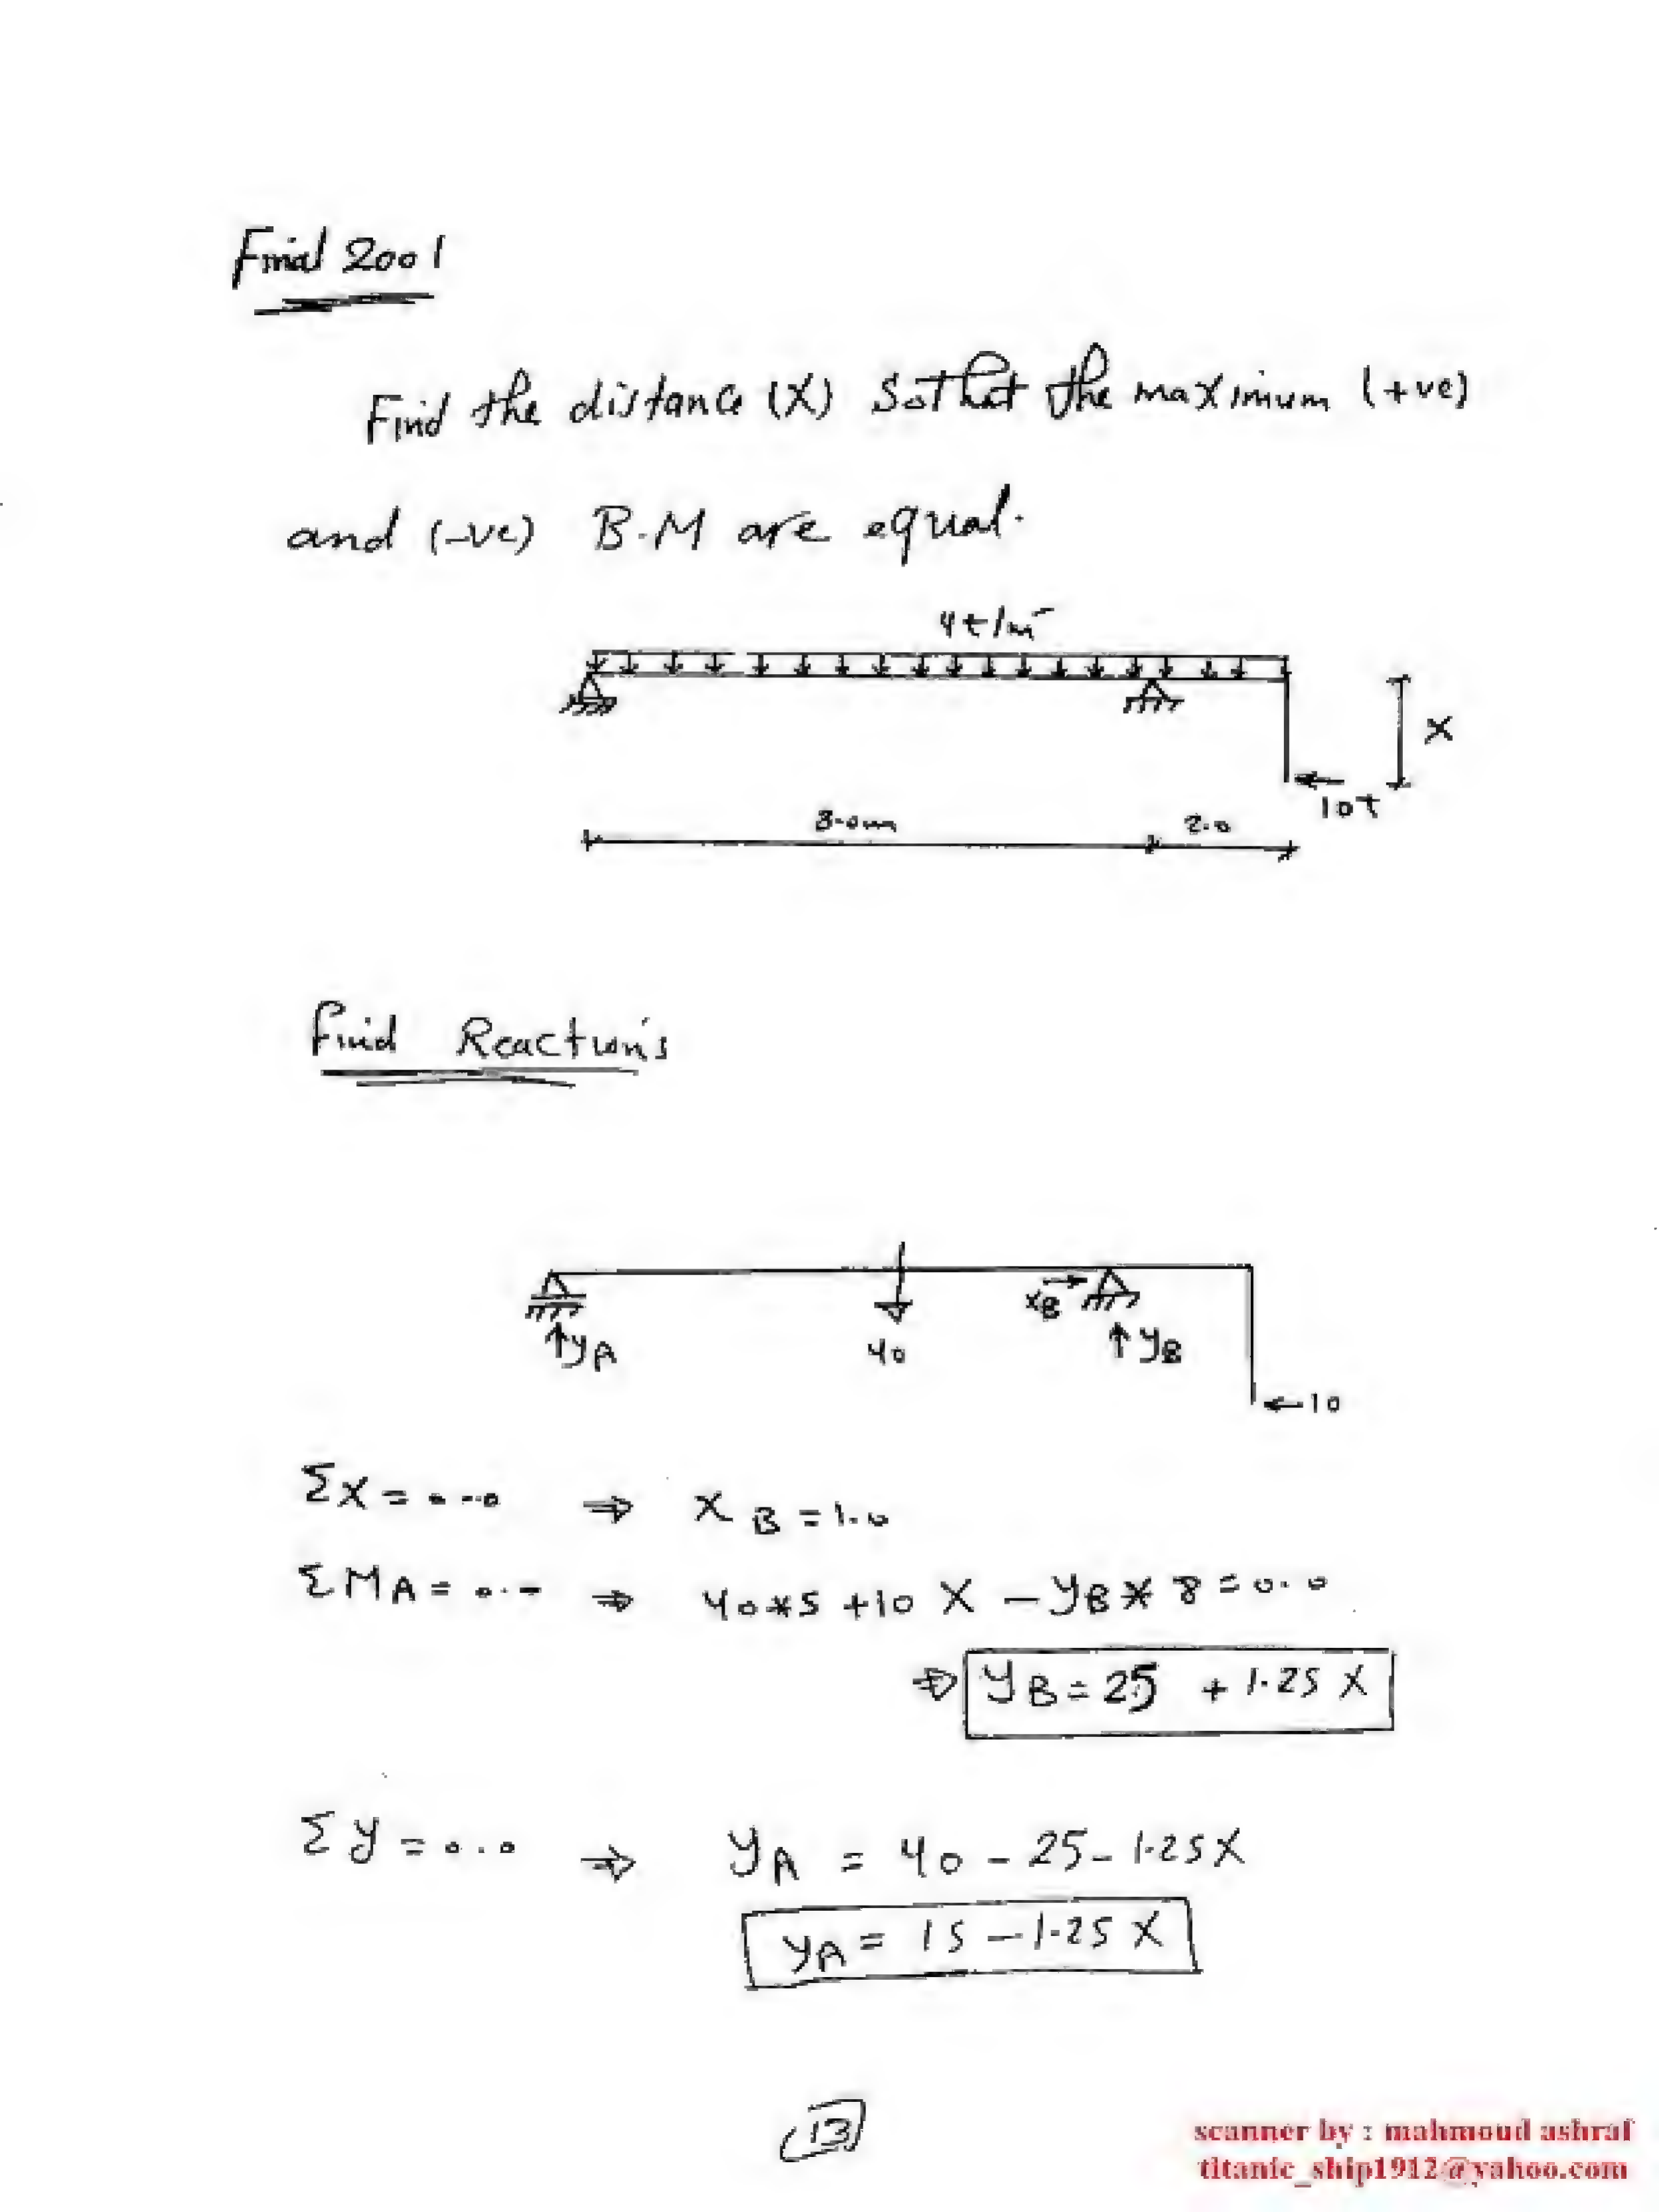 Final 2001
Find the distance (X) So that the maximum (+ve)
and (-ve) B.M are equal.
4t/m
X
10t
8.0m 2.0
Find Reactions
XB
YA 40 YB
10
ΣX = 0.0 ⇒ XB = 10
ΣMA = 0.0 ⇒ 40*5 +10 X - YB * 8 = 0.0
⇒ YB = 25 + 1.25 X
ΣY = 0.0 ⇒ YA = 40 - 25 - 1.25X
YA = 15 - 1.25 X
13
scanner by : mahmoud ashraf
titanic_ship1912@yahoo.com